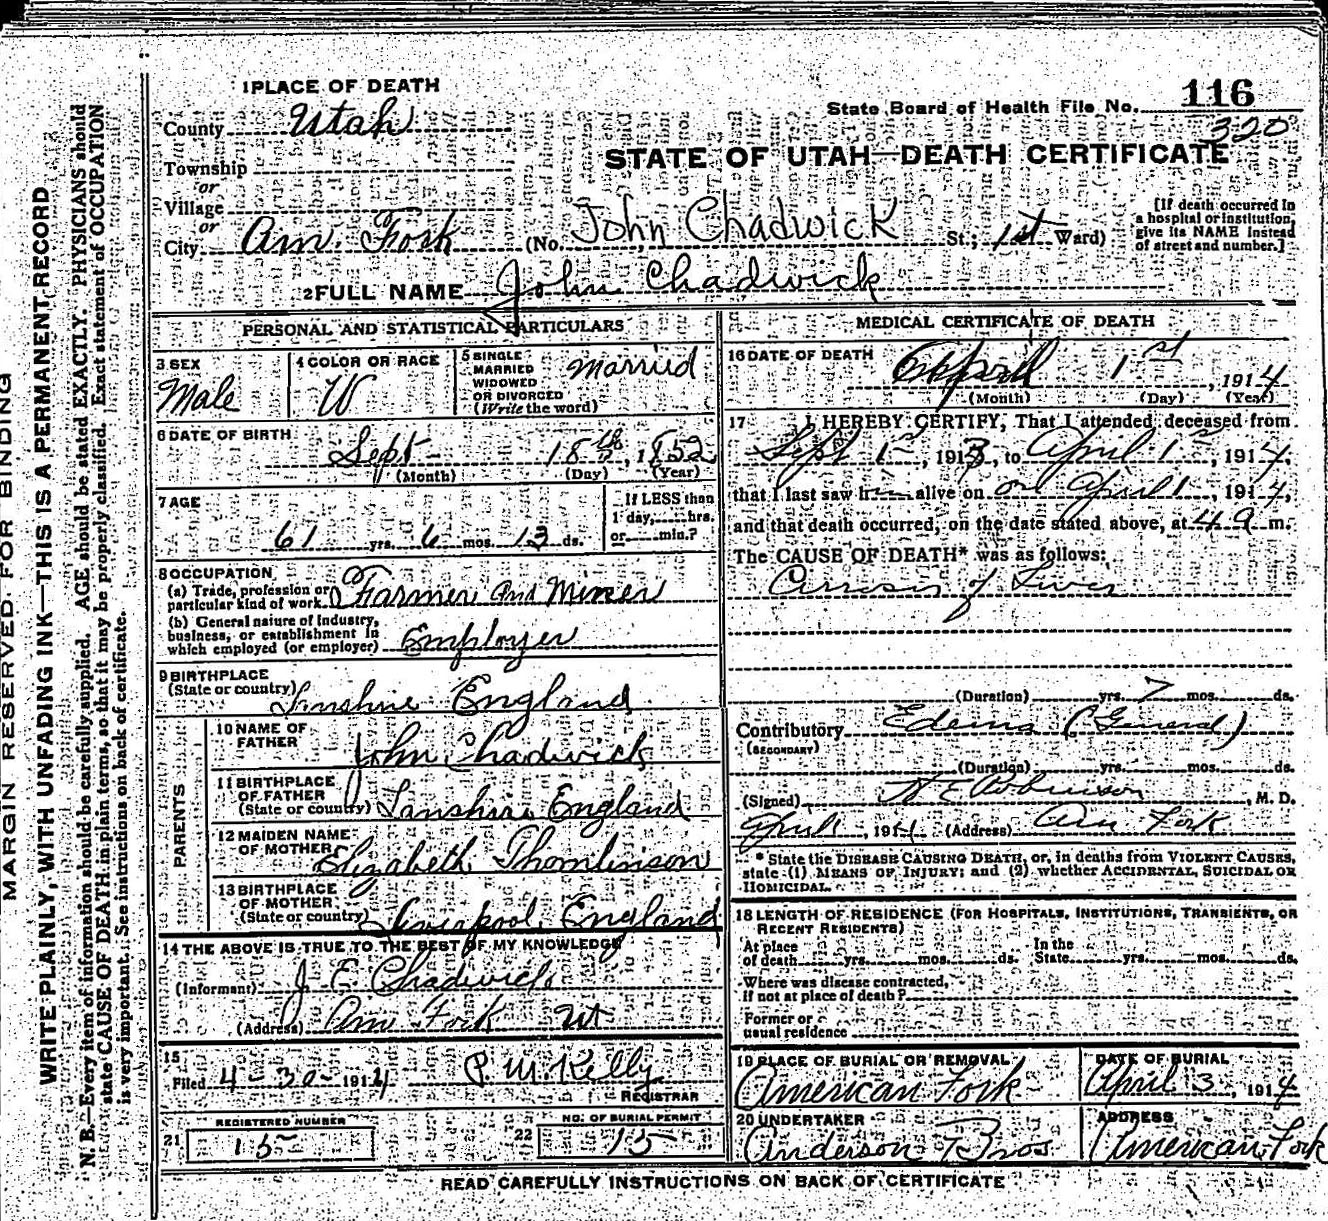 1 PLACE OF DEATH
County Utah
Township
or
Village
or
City Am. Fork (No. John Chadwick St.; 1st Ward)
State Board of Health File No. 116
320
STATE OF UTAH—DEATH CERTIFICATE
[If death occurred in
a hospital or institution,
give its NAME instead
of street and number.]
2 FULL NAME John Chadwick
PERSONAL AND STATISTICAL PARTICULARS
3 SEX
Male
4 COLOR OR RACE
W
5 SINGLE
MARRIED
WIDOWED
OR DIVORCED
(Write the word)
Married
6 DATE OF BIRTH
Sept 18th, 1852
(Month) (Day) (Year)
7 AGE
61 yrs. 6 mos. 13 ds.
If LESS than
1 day, hrs.
or min.?
8 OCCUPATION
(a) Trade, profession or
particular kind of work Farmer and Miner
(b) General nature of Industry,
business, or establishment in
which employed (or employer) Employer
9 BIRTHPLACE
(State or country) Lanshire England
PARENTS
10 NAME OF
FATHER John Chadwick
11 BIRTHPLACE
OF FATHER
(State or country) Lanshire England
12 MAIDEN NAME
OF MOTHER Elizabeth Thomlinson
13 BIRTHPLACE
OF MOTHER
(State or country) Liverpool, England
14 THE ABOVE IS TRUE TO THE BEST OF MY KNOWLEDGE
(Informant) J. E. Chadwick
(Address) Am Fork Ut
15
Filed 4-30-1914 P M Kelly
REGISTRAR
REGISTERED NUMBER
21 15
NO. OF BURIAL PERMIT
22 15
MEDICAL CERTIFICATE OF DEATH
16 DATE OF DEATH
April 1st, 1914
(Month) (Day) (Year)
17 I HEREBY CERTIFY, That I attended deceased from
Sept 1st, 1913, to April 1st, 1914,
that I last saw h alive on on April 1, 1914,
and that death occurred, on the date stated above, at 4 a m.
The CAUSE OF DEATH* was as follows:
Cirrosis of Liver
(Duration) yrs. 7 mos. ds.
Contributory Edema (General)
(SECONDARY)
(Duration) yrs. mos. ds.
(Signed) Robinson, M. D.
April, 1914 (Address) Am Fork
* State the DISEASE CAUSING DEATH, or, in deaths from VIOLENT CAUSES,
state (1) MEANS OF INJURY; and (2) whether ACCIDENTAL, SUICIDAL OR
HOMICIDAL.
18 LENGTH OF RESIDENCE (FOR HOSPITALS, INSTITUTIONS, TRANSIENTS, OR
RECENT RESIDENTS)
At place
of death yrs. mos. ds.
In the
State yrs. mos. ds.
Where was disease contracted,
if not at place of death?
Former or
usual residence
19 PLACE OF BURIAL OR REMOVAL
American Fork
DATE OF BURIAL
April 3, 1914
20 UNDERTAKER
Anderson Bros
ADDRESS
American Fork
READ CAREFULLY INSTRUCTIONS ON BACK OF CERTIFICATE
MARGIN RESERVED FOR BINDING
WRITE PLAINLY, WITH UNFADING INK—THIS IS A PERMANENT RECORD
N. B.—Every item of information should be carefully supplied. AGE should be stated EXACTLY. PHYSICIANS should
state CAUSE OF DEATH in plain terms, so that it may be properly classified. Exact statement of OCCUPATION
is very important. See instructions on back of certificate.